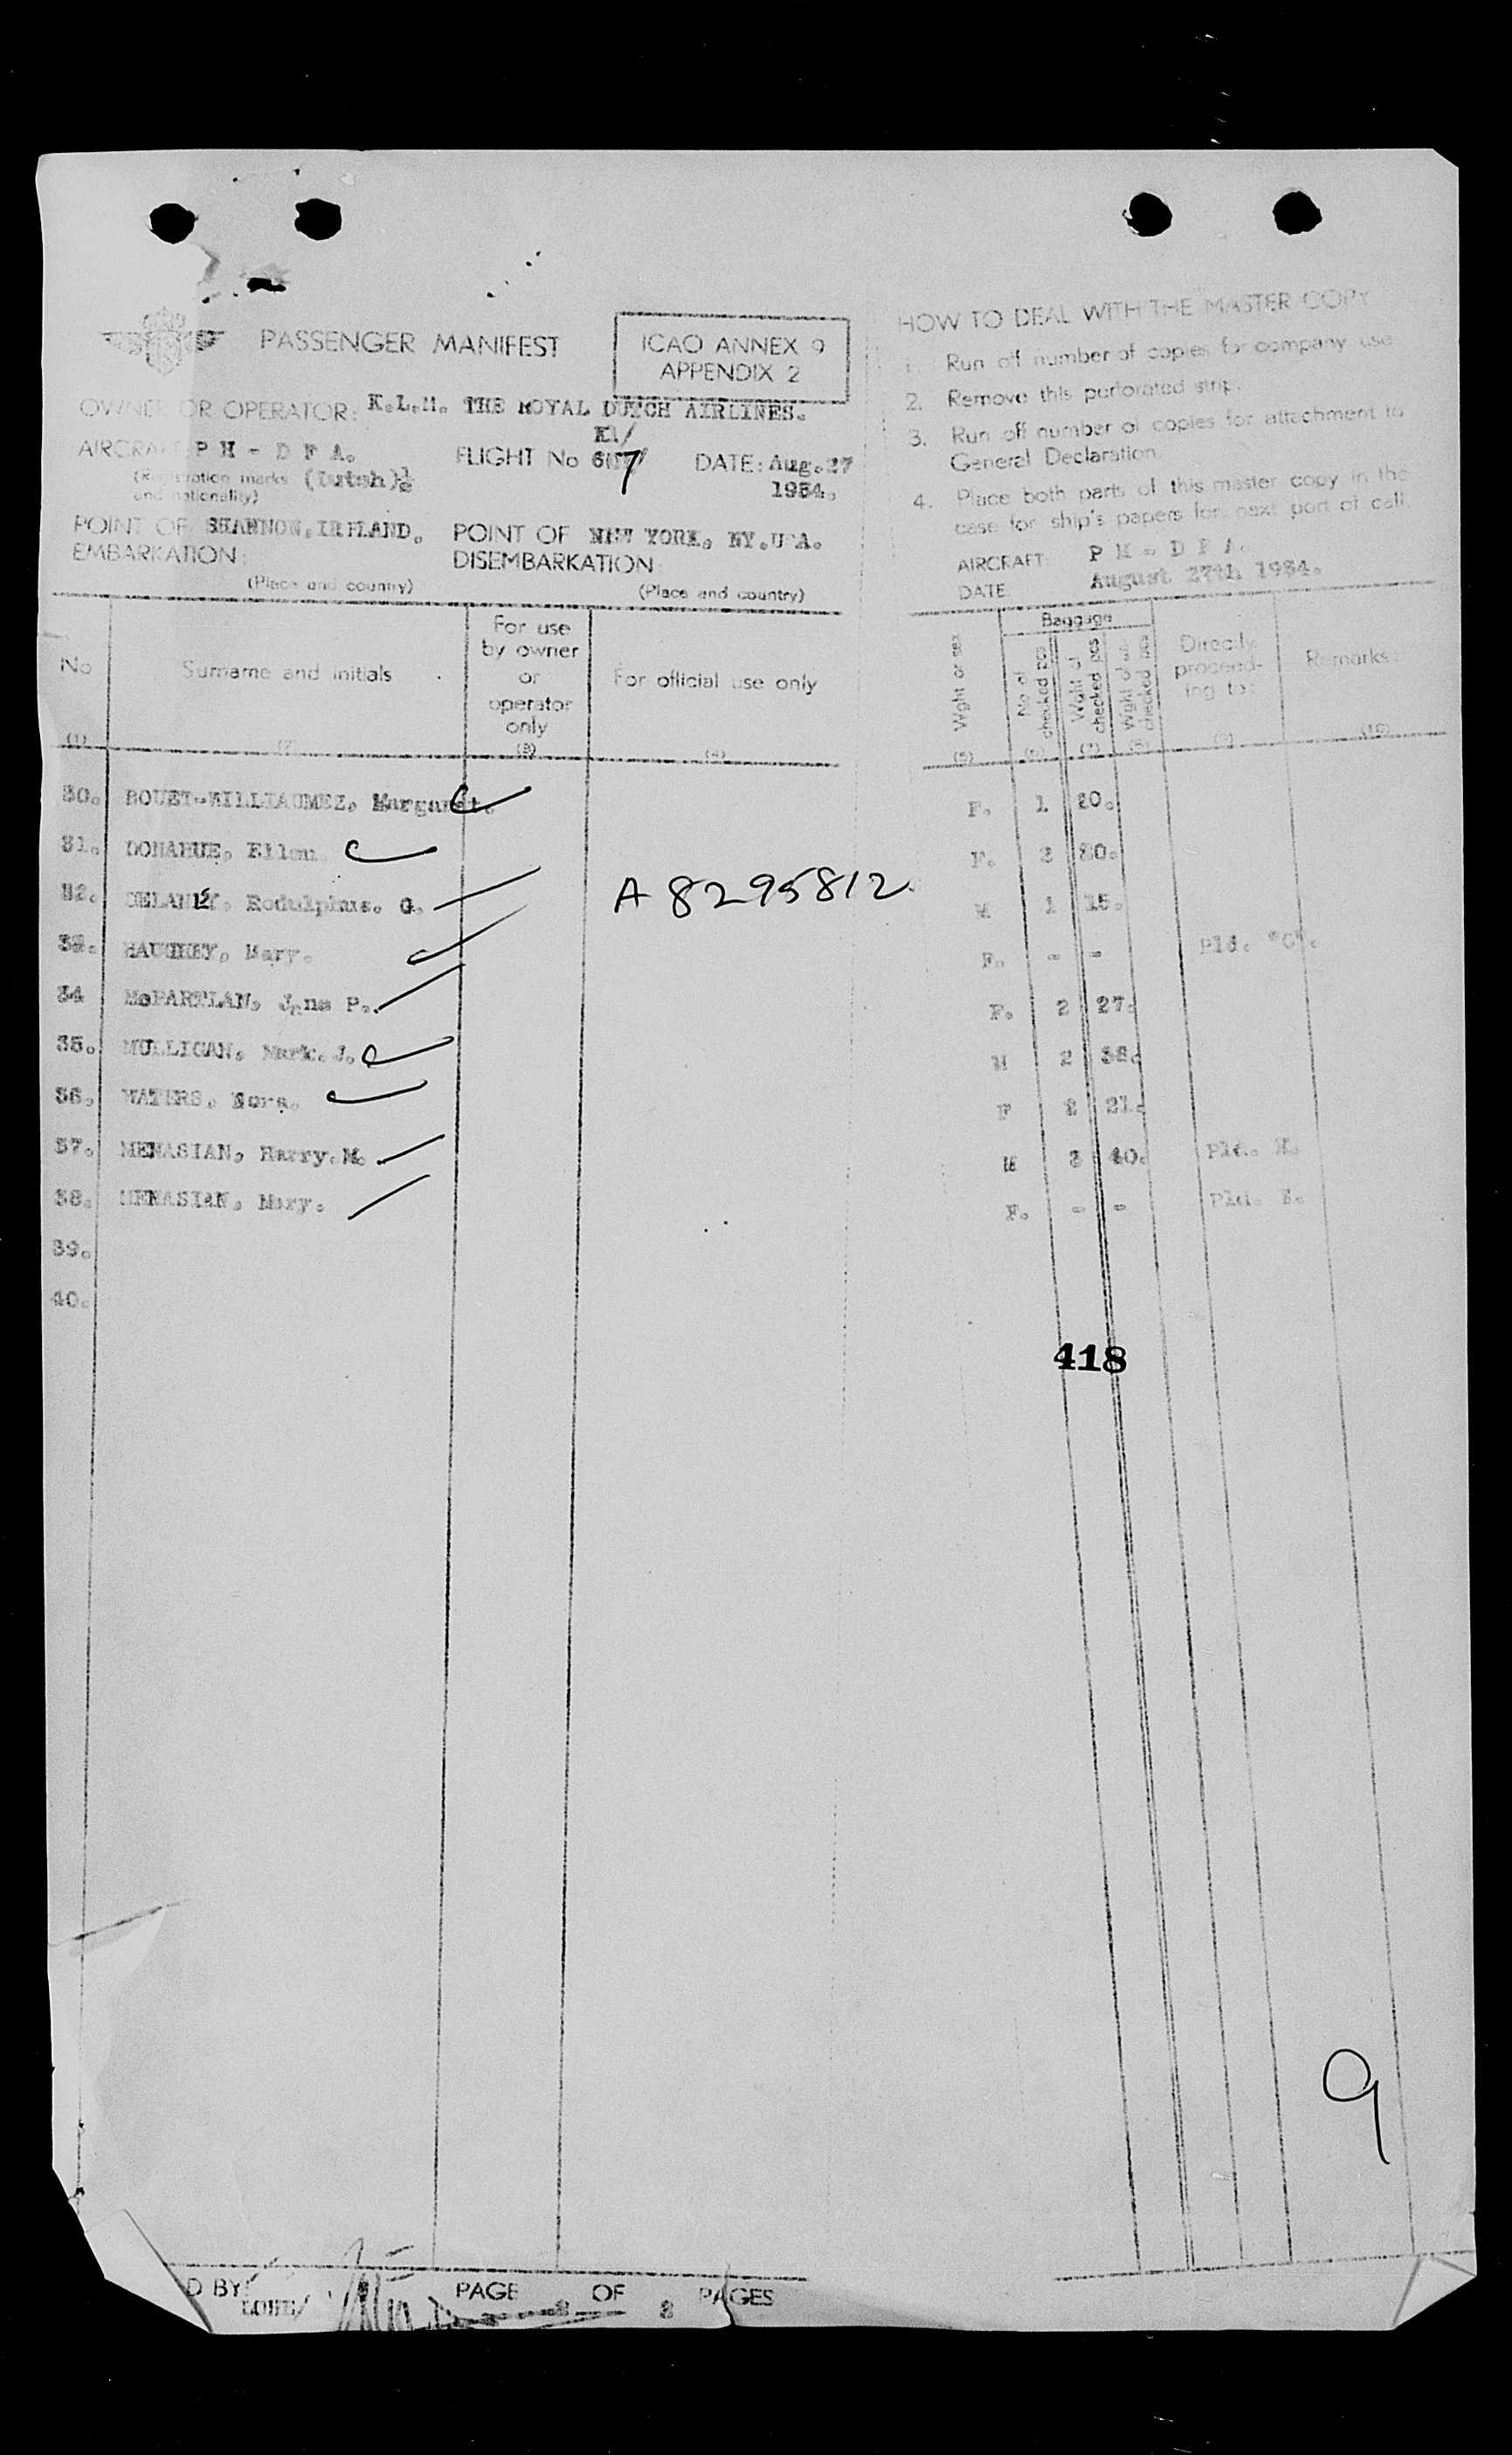 PASSENGER MANIFEST
ICAO ANNEX 9
APPENDIX 2
OWNER OR OPERATOR: K.L.M. THE ROYAL DUTCH AIRLINES.
Kl/
AIRCRAFT P H - D F A. FLIGHT No 607 DATE: Aug. 27
(Registration marks and nationality) (Dutch) 1954.
POINT OF EMBARKATION: SHANNON, IRELAND. POINT OF DISEMBARKATION: NEW YORK, NY. USA.
(Place and country) (Place and country)
HOW TO DEAL WITH THE MASTER COPY
1. Run off number of copies for company use
2. Remove this perforated strip.
3. Run off number of copies for attachment to
General Declaration.
4. Place both parts of this master copy in the
case for ship's papers for next port of call.
AIRCRAFT: P H - D F A.
DATE: August 27th 1954.
No (1)
Surname and initials (2)
For use by owner or operator only (3)
For official use only (4)
Wght or sex (5)
Baggage
No of checked pcs (6)
Wght of checked pcs (7)
Wght of un checked pcs (8)
Directly proceeding to: (9)
Remarks: (10)
30. BOUET-WILLIAUMEZ, Margaret. F. 1 20.
31. DONAHUE, Ellen F. 2 30.
32. DELANEY, Rodulphus. G. A 8295812 M 1 15.
33. HAUGHEY, Mary. F. - - Pld. "C".
34 McPARTLAN, Jane P. F. 2 27.
35. MULLIGAN, Mark. J. M 2 38.
36. WATERS, Nora. F 2 21.
37. MENASIAN, Harry. M. M 3 40. Pld. M.
38. MENASIAN, Mary. F. - - Pld.
39.
40.
418
9
D BY: LOHE/ PAGE OF 2 PAGES